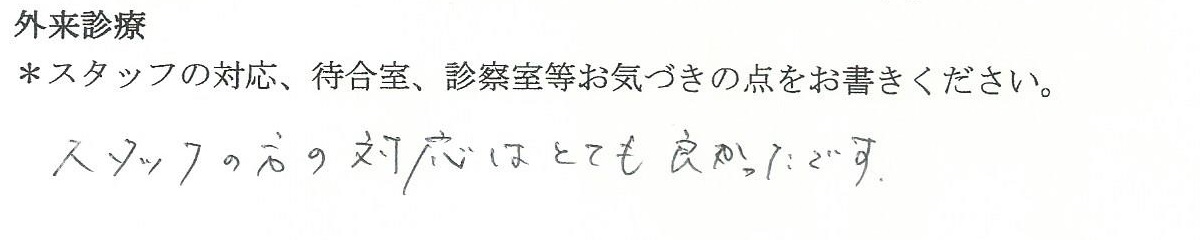 外来診療
＊スタッフの対応、待合室、診察室等お気づきの点をお書きください。
スタッフの方の対応はとても良かったです.